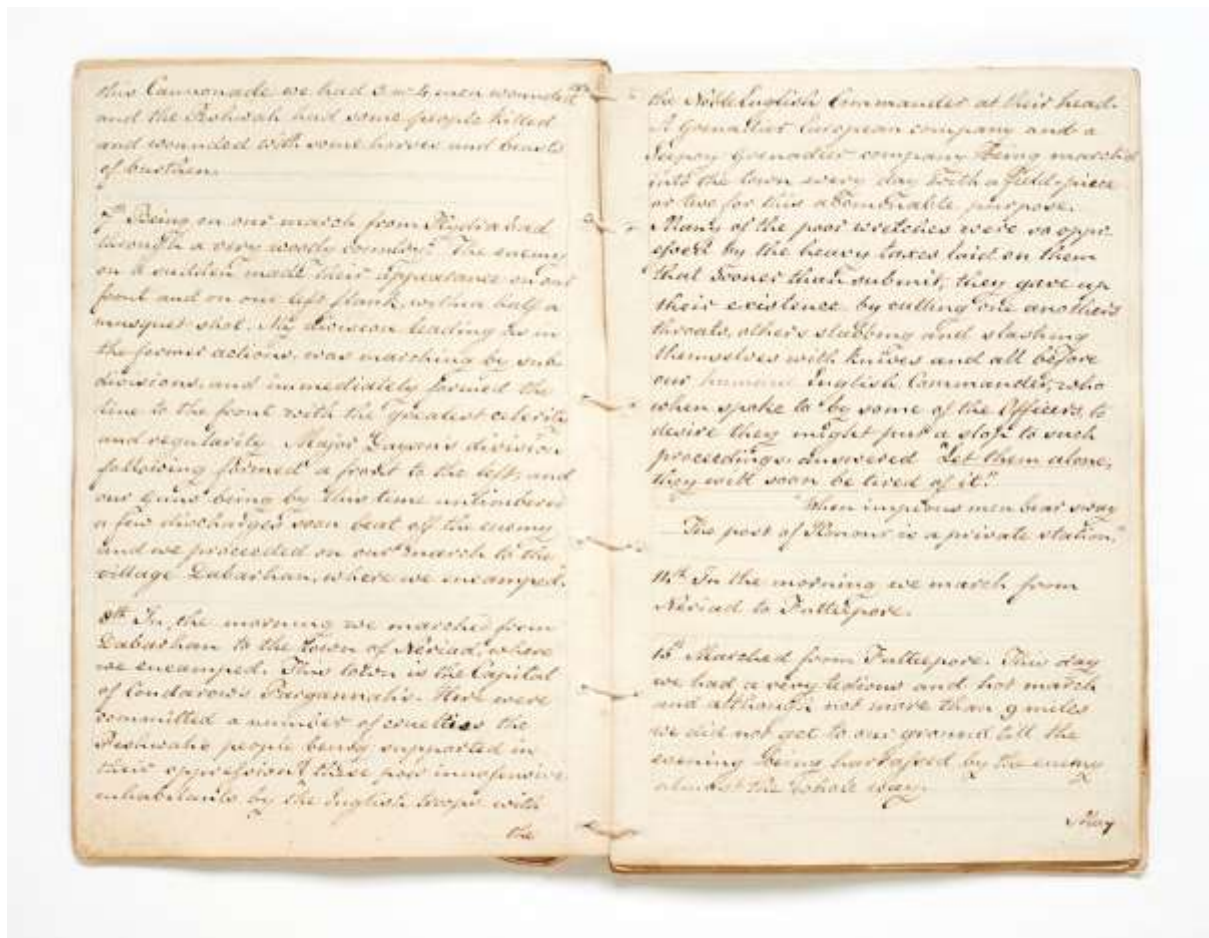 this Cannonade we had 3 or 4 men wounded
and the Peshwah had some people killed
and wounded with some horses and beasts
of burthen.
7th Being on our march from Hydrabad
through a very woody country. The enemy
on a sudden made their appearance on our
front and on our left flank within half a
musquet shot. My division leading as in
the former actions, was marching by sub
divisions, and immediately formed the
line to the front with the greatest celerity
and regularity. Major division
following formed a front to the left, and
our guns being by this time unlimbered
a few discharges soon beat off the enemy
and we proceeded on our march to the
village Dabarhan, where we encamped.
8th In the morning we marched from
Dabarhan to the town of Neriad, where
we encamped. This town is the Capital
of Condarow's Pargannahs. Here were
committed a number of cruelties the
Peshwahs people being supported in
their oppression these poor innofensive
inhabitants by the English troops with
the
the Noble English Commander at their head.
A Grenadier European company and a
Seepoy Grenadier company being marched
into the town every day with a field-piece
or two for this abominable purpose.
Many of the poor wretches were so oppr-
essed by the heavy taxes laid on them
that sooner than submit, they gave up
their existence by cutting one anothers
throats, others stabbing and slashing
themselves with knives and all before
our humane English Commander, who
when spoke to by some of the Officers, to
desire they might put a stop to such
proceedings, answered "Let them alone,
they will soon be tired of it."
"When impious men bear sway
The post of Honour is a private station."
14th In the morning we march from
Neriad to Futteepore.
15th Marched from Futteepore. This day
we had a very tedious and hot march
and although not more than 9 miles
we did not get to our ground till the
evening being harrassed by the enemy
almost the whole way.
May